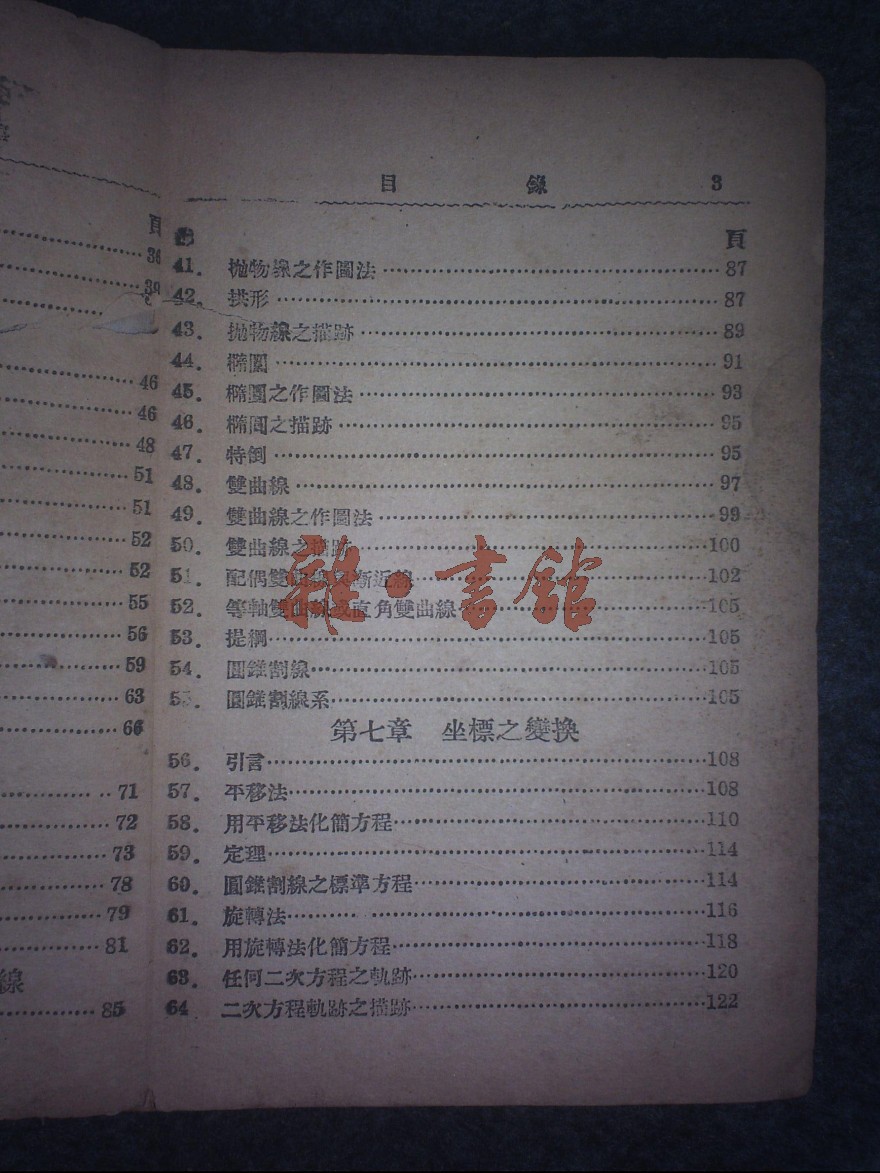 頁
36
39
46
46
48
51
51
52
52
55
56
59
63
66
71
72
73
78
79
81
線
85
目 錄 3
頁
41. 拋物線之作圖法 87
42. 拱形 87
43. 拋物線之描跡 89
44. 橢圓 91
45. 橢圓之作圖法 93
46. 橢圓之描跡 95
47. 特例 95
48. 雙曲線 97
49. 雙曲線之作圖法 99
50. 雙曲線之描跡 100
51. 配偶雙曲線 漸近線 102
52. 等軸雙曲線或直角雙曲線 105
53. 提綱 105
54. 圓錐割線 105
55. 圓錐割線系 105
第七章 坐標之變換
56. 引言 108
57. 平移法 108
58. 用平移法化簡方程 110
59. 定理 114
60. 圓錐割線之標準方程 114
61. 旋轉法 116
62. 用旋轉法化簡方程 118
63. 任何二次方程之軌跡 120
64 二次方程軌跡之描跡 122
雜·書館